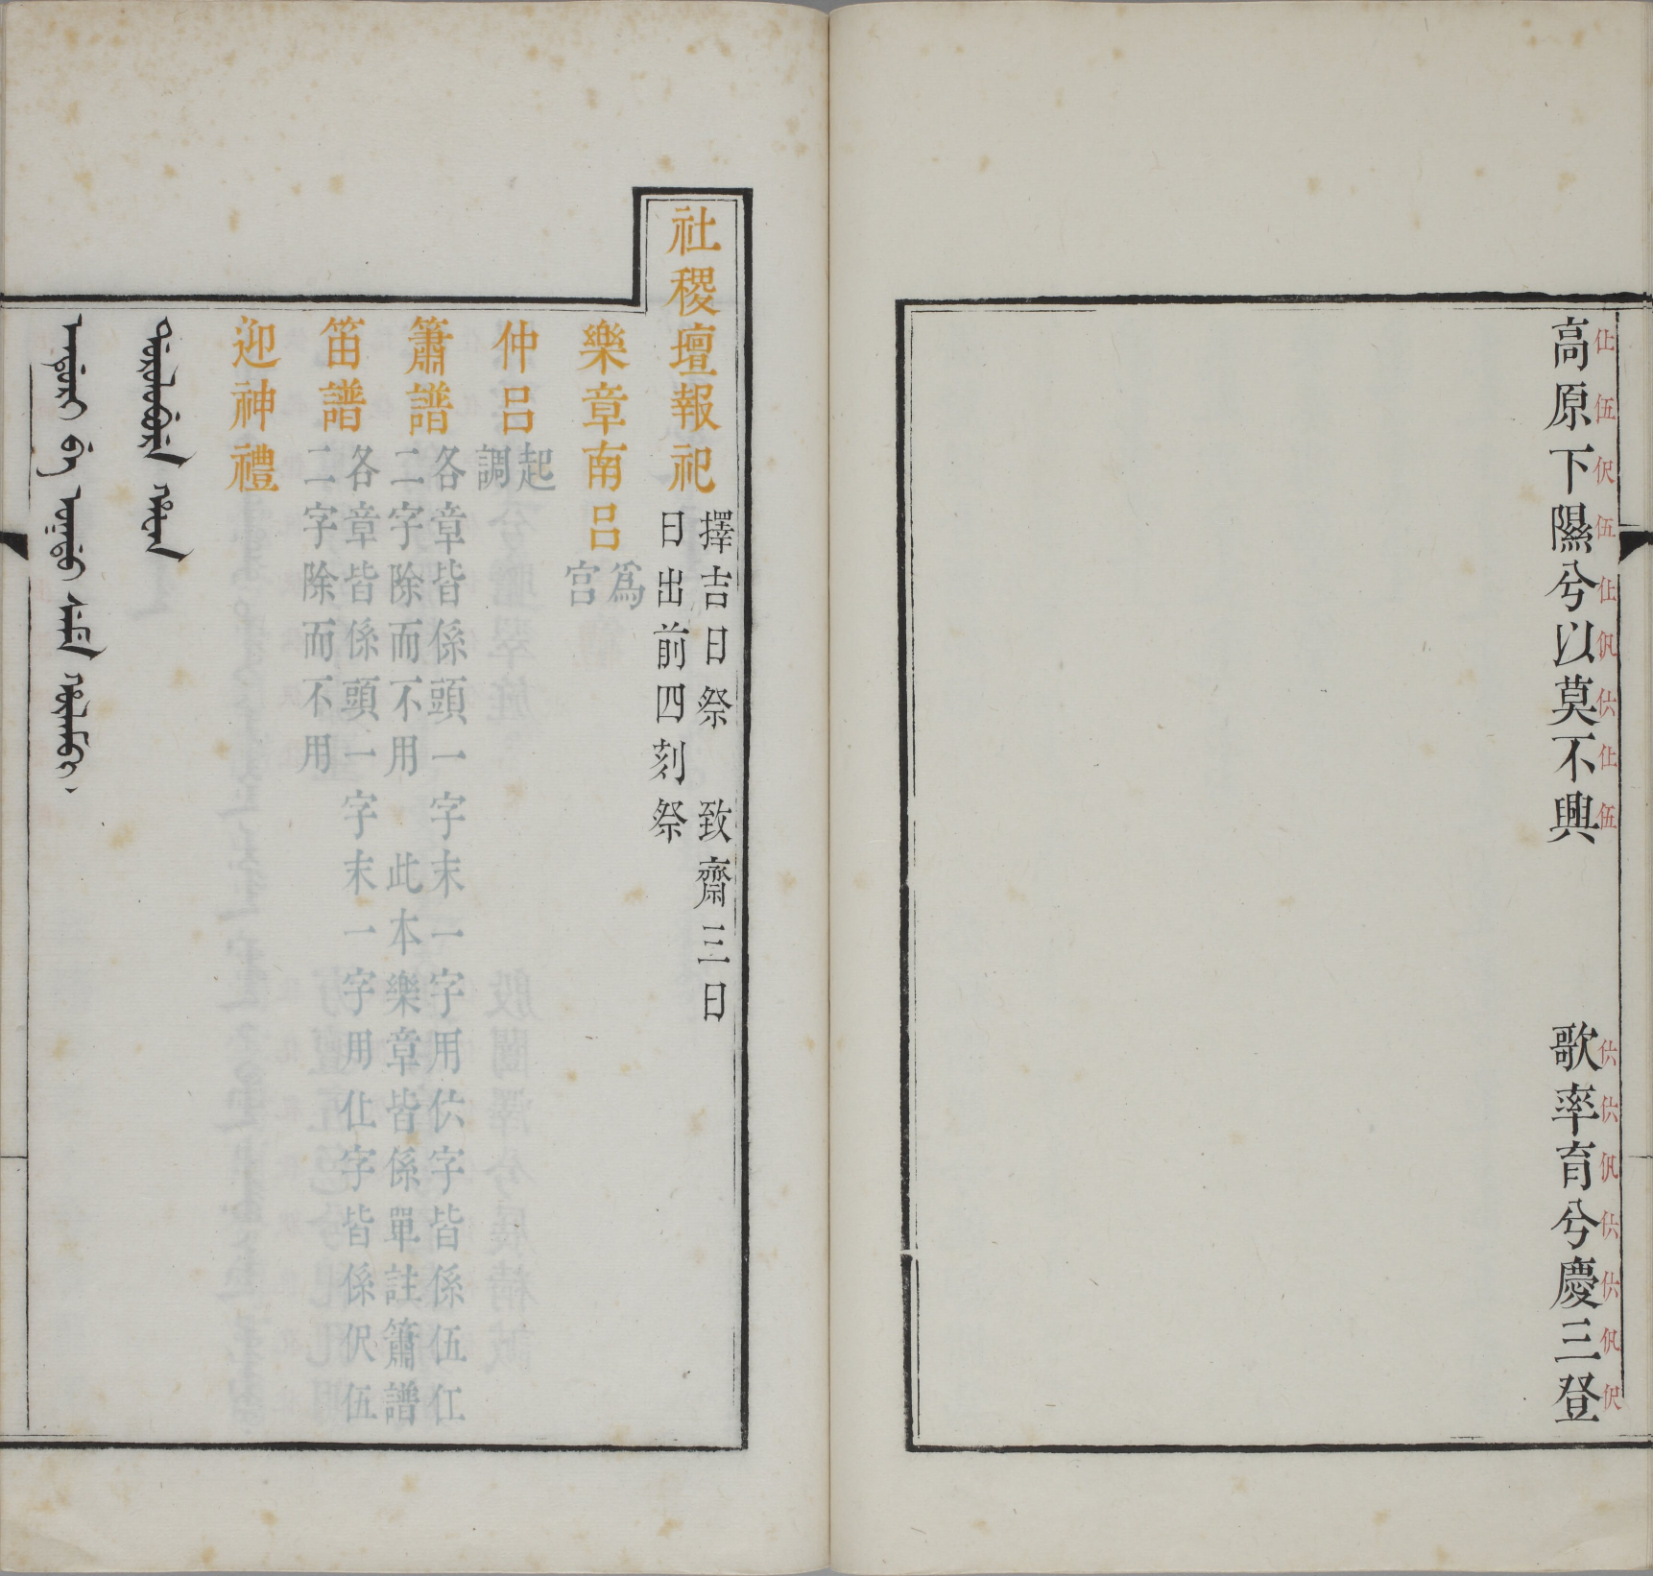 仩伍伬伍仩仩伍 伬
高原下隰兮以莫不興 歌率育兮慶三登
社稷壇報祀
擇吉日祭 致齋三日
日出前四刻祭
樂章南呂
爲
宮
仲呂
起
調
簫譜
各章皆係頭一字末一字用字皆係伍仜
二字除而不用 此本樂章皆係單註簫譜
笛譜
各章皆係頭一字末一字用仩字皆係伬伍
二字除而不用
迎神禮